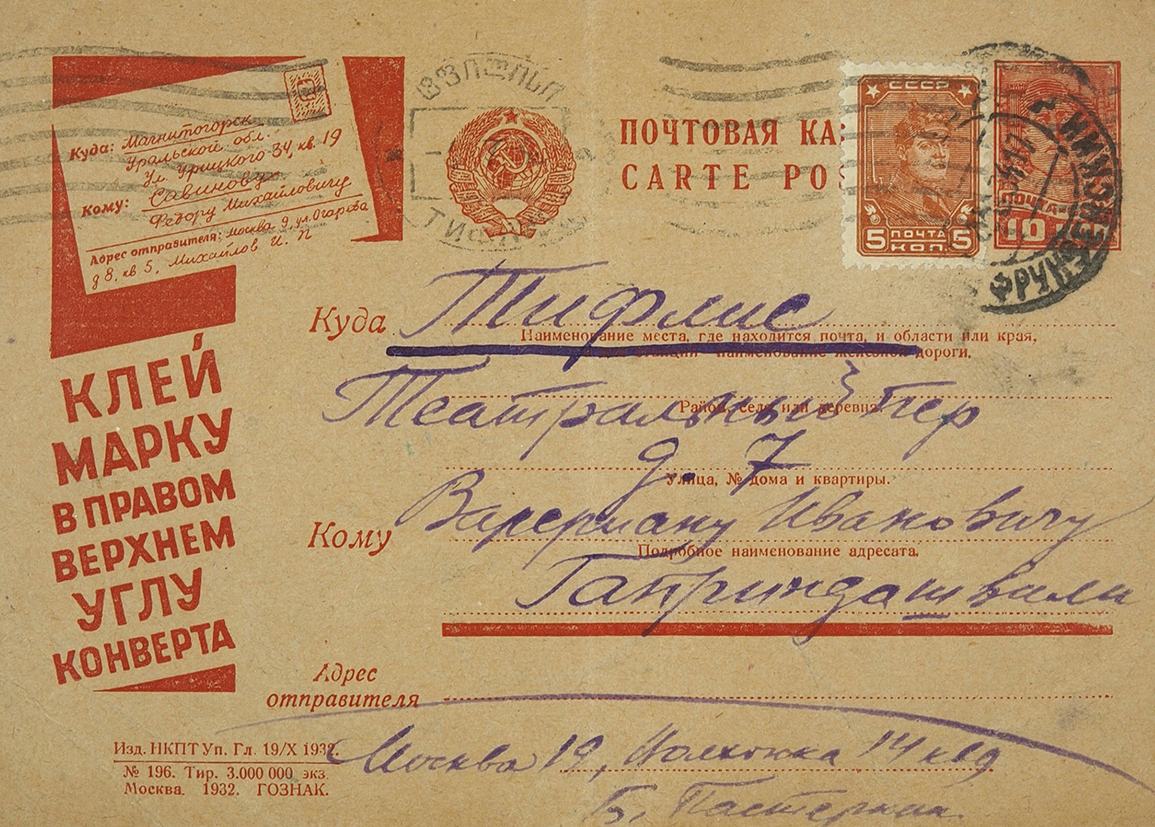 Куда: Магнитогорск
Уральской обл.
Ул Урицкого 34, кв. 19
Кому: Савинову
Федору Михайловичу
Адрес отправителя: Москва 9 ул. Огарева
д 8, кв 5, Михайлов И. П
КЛЕЙ
МАРКУ
В ПРАВОМ
ВЕРХНЕМ
УГЛУ
КОНВЕРТА
ПОЧТОВАЯ КА
CARTE POS
СССР
5 ПОЧТА 5
КОП.
ПОЧТА
10
Куда Тифлис
Наименование места, где находится почта, и области или края,
наименование железной дороги.
Театральный пер
Район, село или деревня.
д. 7
Улица, № дома и квартиры.
Кому Валериану Ивановичу
Подробное наименование адресата.
Гаприндашвили
Адрес
отправителя
Москва 19, Волхонка 14 кв 9
Б. Пастернак
Изд. НКПТ Уп. Гл. 19/X 1932.
№ 196. Тир. 3.000 000 экз.
Москва. 1932. ГОЗНАК.